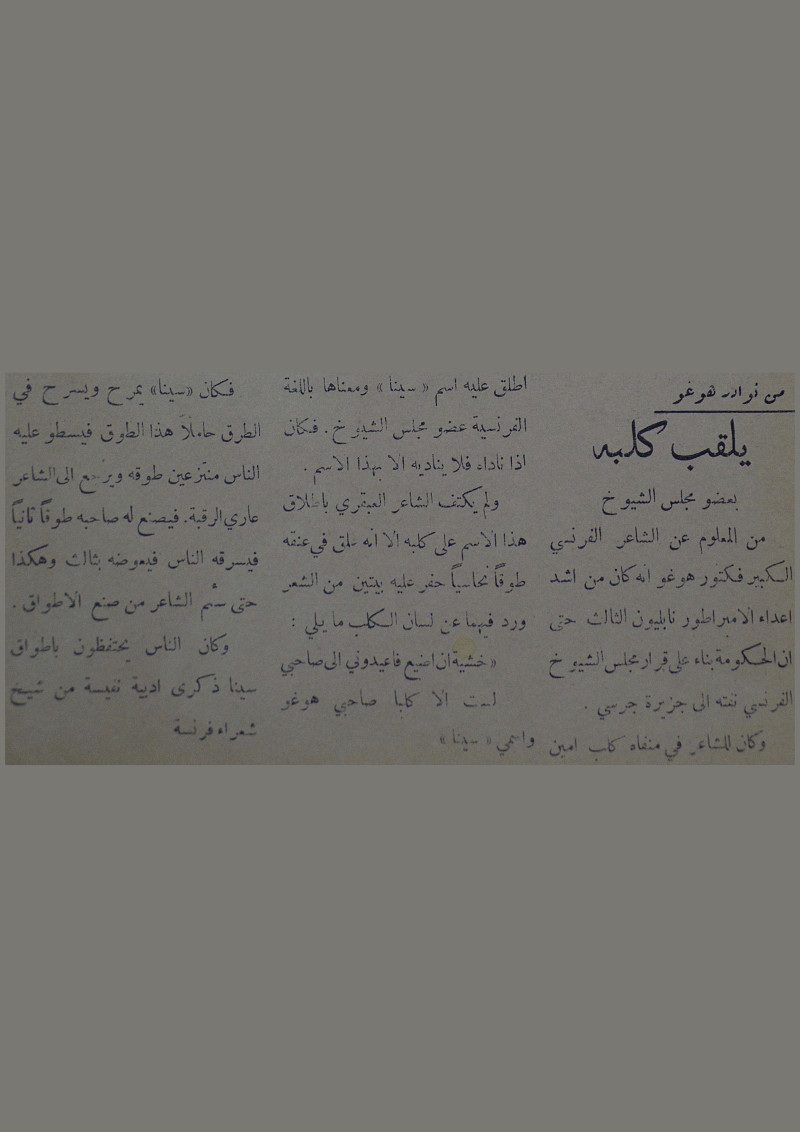 من نوادر هوغو
يلقب كلبه
بعضو مجلس الشيوخ
من المعلوم عن الشاعر الفرنسي
الكبير فكتور هوغو انه كان من اشد
اعداء الامبراطور نابليون الثالث حتى
ان الحكومة بناء على قرار مجلس الشيوخ
الفرنسي نفته الى جزيرة جرسي .
وكان للشاعر في منفاه كلب امين
اطلق عليه اسم « سينا » ومعناها باللغة
الفرنسية عضو مجلس الشيوخ . فكان
اذا ناداه فلا يناديه الا بهذا الاسم .
ولم يكتف الشاعر العبقري باطلاق
هذا الاسم على كلبه الا انه علق في عنقه
طوقاً نحاسياً حفر عليه بيتين من الشعر
ورد فيهما عن لسان الكلب ما يلي :
« خشية ان اضيع فاعيدوني الى صاحبي
لست الا كلبا صاحبي هوغو
واسمي « سينا »
فكان «سينا» يمرح ويسرح في
الطرق حاملاً هذا الطوق فيسطو عليه
الناس منتزعين طوقه ويرجع الى الشاعر
عاري الرقبة. فيصنع له صاحبه طوقاً ثانياً
فيسرقه الناس فيعوضه بثالث وهكذا
حتى سئم الشاعر من صنع الاطواق .
وكان الناس يحتفظون باطواق
سينا ذكرى ادبية نفيسة من شيخ
شعراء فرنسة